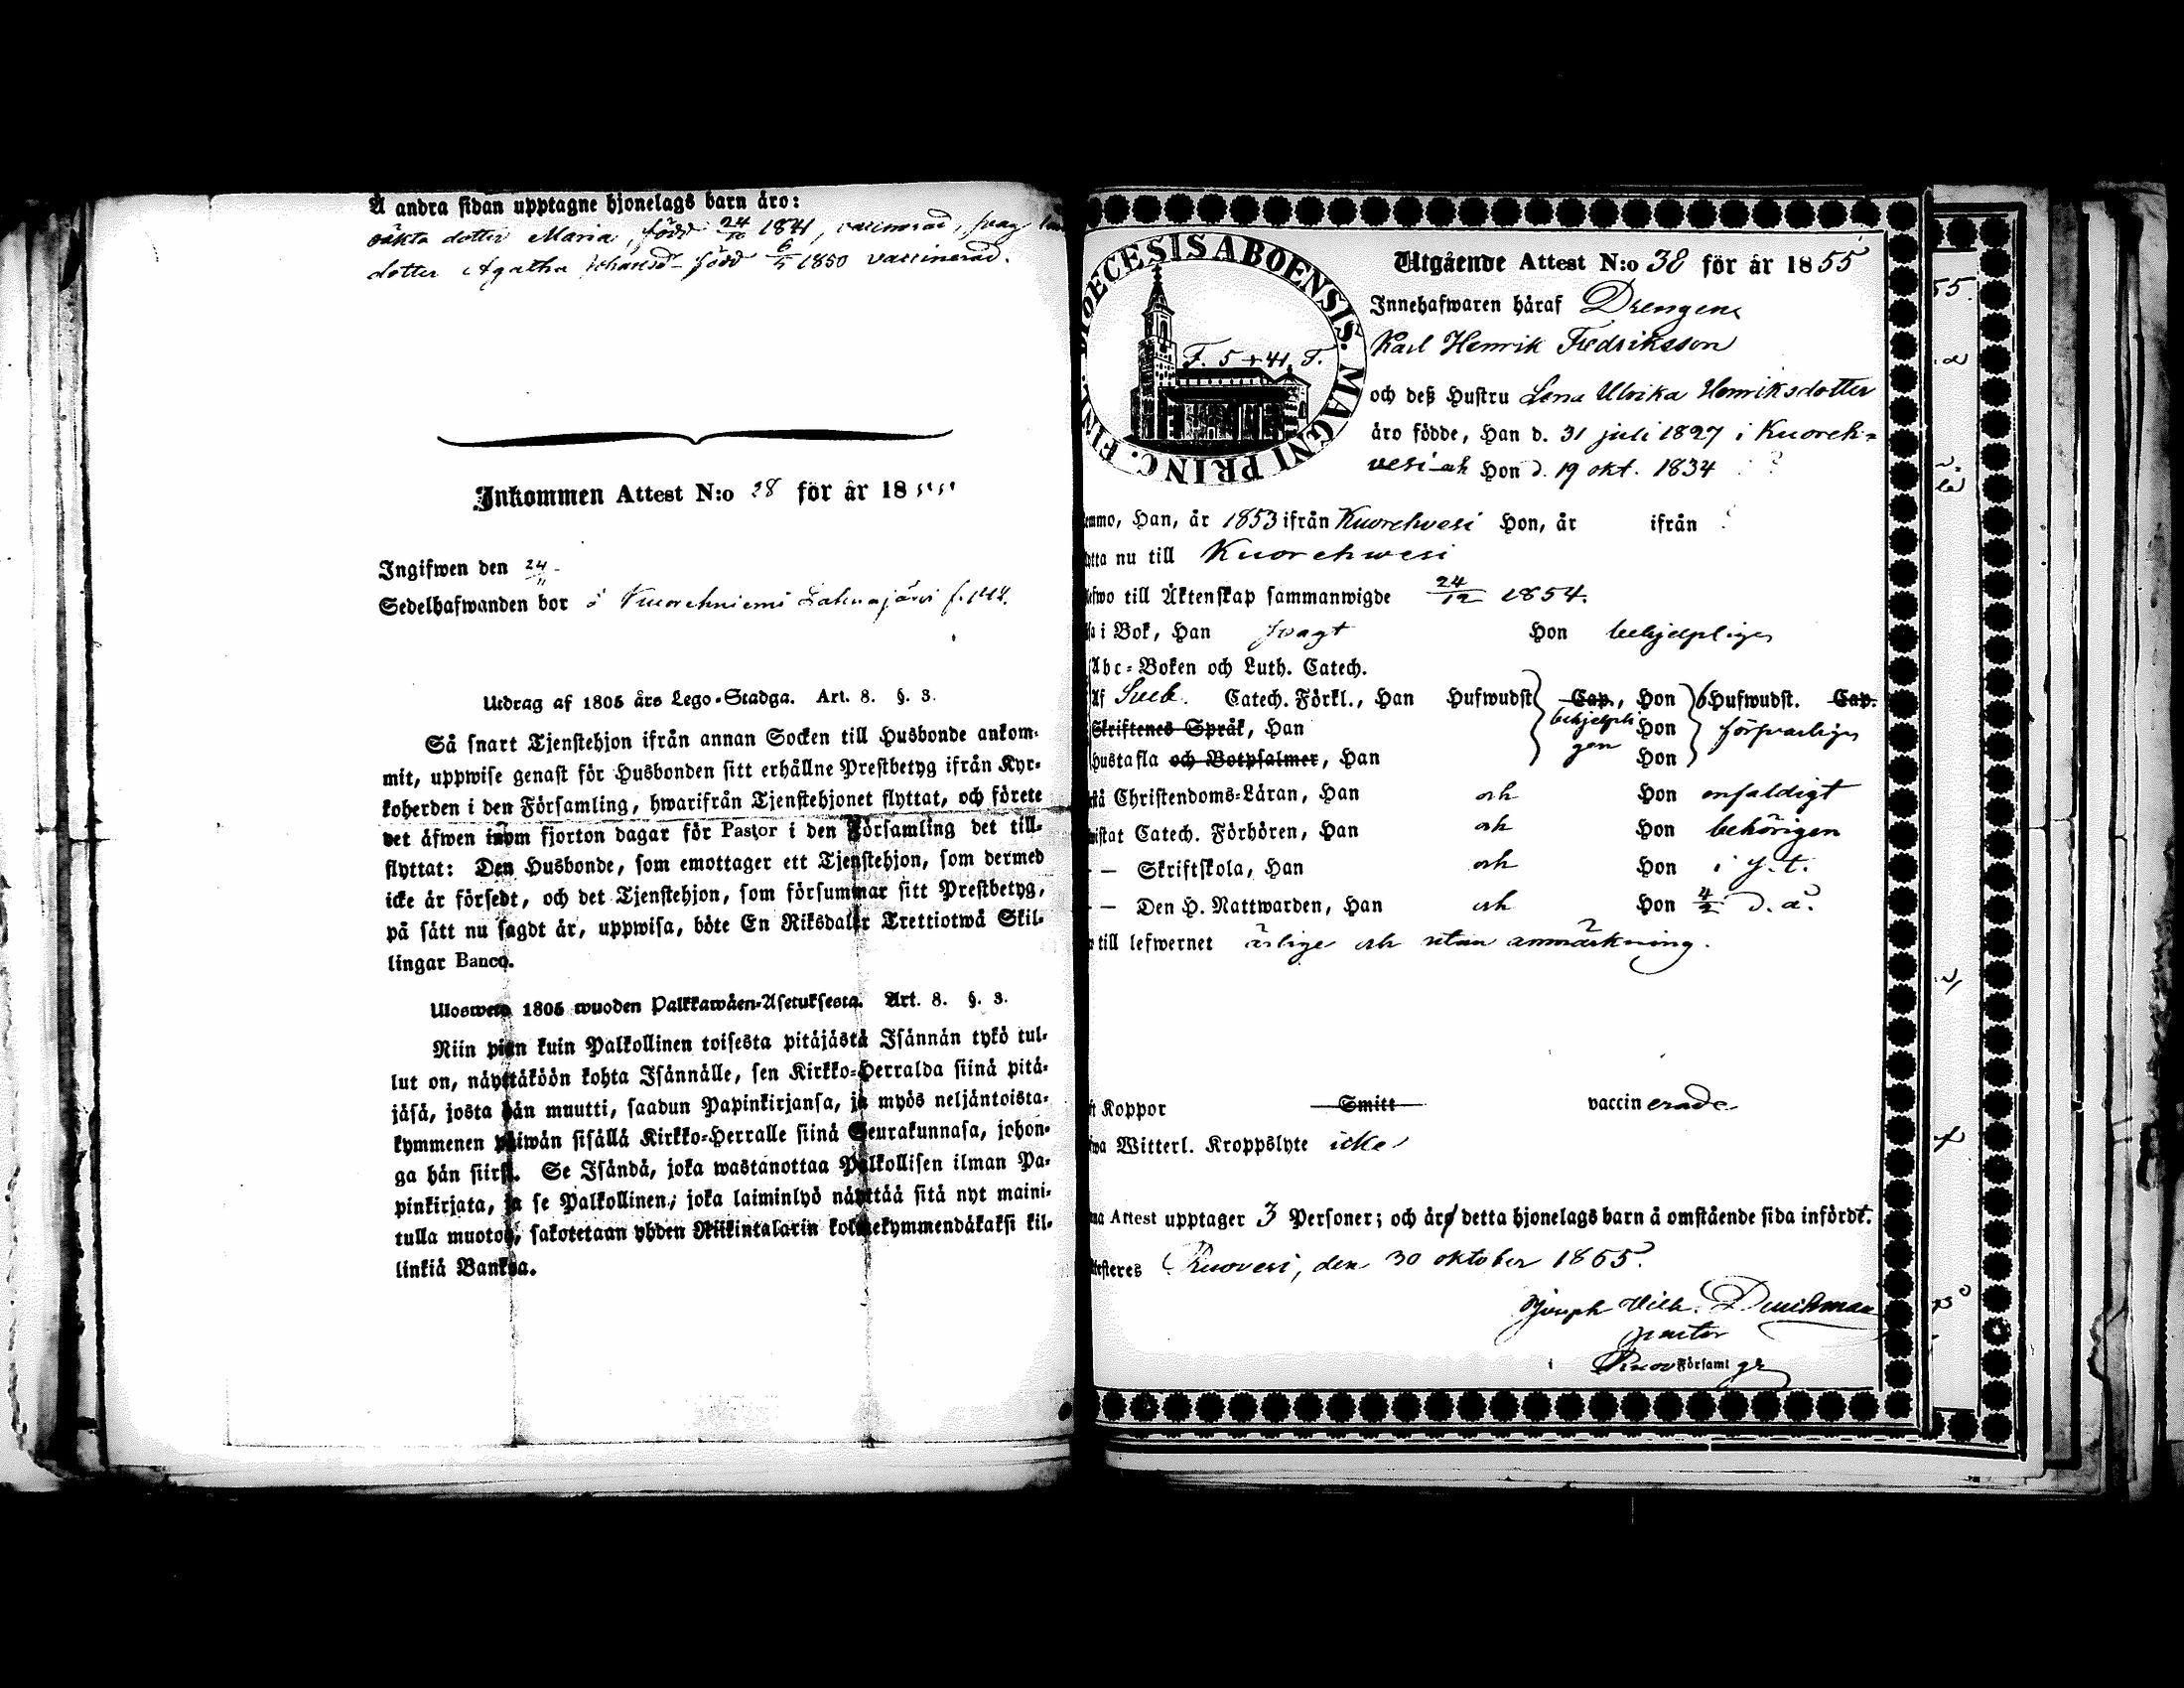 Å andra sidan upptagne hjonelags barn äro:
oäkta dotter Maria, född 24/10 1841, vaccinerad, svag
dotter Agatha Johansd. född 6/5 1850 vaccinerad.
Inkommen Attest N:o 28 för år 1855
Ingifwen den 24/11
Sedelhafwanden bor å Kuorehniemi Lahnajärvi f. 144.
Utdrag af 1805 års Lego-Stadga. Art. 8. §. 3.
Så snart Tjenstehjon ifrån annan Socken till Husbonde ankom-
mit, uppwise genast för Husbonden sitt erhållne Prestbetyg ifrån Kyr-
koherden i den Församling, hwarifrån Tjenstehjonet flyttat, och förete
det äfwen inom fjorton dagar för Pastor i den Församling det till-
flyttat: Den Husbonde, som emottager ett Tjenstehjon, som dermed
icke är försedt, och det Tjenstehjon, som försummar sitt Prestbetyg,
på sätt nu sagdt är, uppwisa, böte En Riksdaler Trettiotwå Skil-
lingar Banco.
Ulosweto 1805 wuoden Palkkawäen-Asetuksesta. Art. 8. §. 3.
Niin pian kuin Palkollinen toisesta pitäjästä Isännän tykö tul-
lut on, näyttäköön kohta Isännälle, sen Kirkko-Herralda siinä pitä-
jäsä, josta hän muutti, saadun Papinkirjansa, ja myös neljäntoista-
kymmenen päiwän sisällä Kirkko-Herralle siinä Seurakunnasa, johon-
ga hän siirsi. Se Isändä, joka wastanottaa Palkollisen ilman Pa-
pinkirjata, ja se Palkollinen, joka laiminlyö näyttää sitä nyt maini-
tulla muotoa, sakotetaan yhden Riikintalarin kolmekymmendäkaksi kil-
linkiä Bankoa.
DIOECESIS ABOENSIS. MAGNI PRINC. FINL.
F. 5 + 41. T.
Utgående Attest N:o 38 för år 1855
Innehafwaren häraf Drengen
Karl Henrik Fredriksson
och deß Hustru Lena Ulrika Henriksdotter
äro födde, Han d. 31 juli 1827 i Kuoreh-
vesi och Hon d. 19 okt. 1834 ?
emmo, Han, år 1853 ifrån Kuorehvesi Hon, år ifrån ?
ytta nu till Kuorehwesi
lefwo till Äktenskap sammanwigde 24/12 1854.
sa i Bok, Han svagt Hon behjelpligen
Abc-Boken och Luth. Catech.
Af Sveb. Catech. Förkl., Han Hufwudst. Cap., Hon 6 Hufwudst. Cap.
Skriftenes Språk, Han behjelpli Hon försvarligen
Hustafla och Botpsalmer, Han gen Hon
stå Christendoms-Läran, Han och Hon enfaldigt
wistat Catech. Förhören, Han och Hon behörigen
— — Skriftskola, Han och Hon i s. t.
— — Den H. Nattwarden, Han och Hon 4/2 d. å.
till lefwernet ärlige och utan anmärkning.
Koppor Smitt vaccinerade
Witterl. Kroppslyte icke
na Attest upptager 3 Personer; och äro detta hjonelags barn å omstående sida infördt.
testeres Ruovesi, den 30 oktober 1855.
Joseph Wilh. Durchman
pastor
i Ruov Församl gr